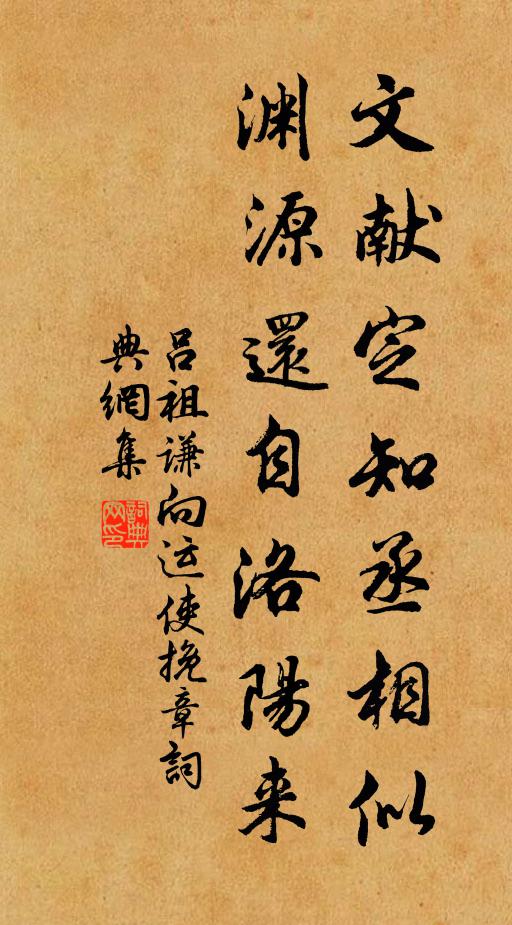 文献定知丞相似
渊源還自洛陽来
吕祖谦向运使挽章詞
典網集
詞典網印